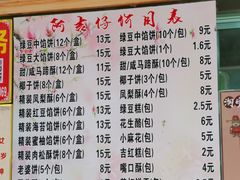 绿豆中馅饼(12个/盒) 13元
绿豆大馅饼(8个/盒) 15元
甜/咸马蹄酥(12个/盒) 13元
椰子饼(8个/盒) 15元
精装凤梨酥(6个/盒) 15元
精装绿豆馅饼(6个/盒) 11元
精装海苔馅饼(6个/盒) 11元
精装蜜柚馅饼(6个/盒) 11元
精装肉松酥饼(8个/盒) 15元
老婆饼(5个/包) 5元
绿豆中馅饼(10个/包) 9元
绿豆大馅饼(1个) 1.5元
甜/咸马蹄酥(10个/包) 9元
椰子饼(3个/包) 5元
凤梨酥(4个/包) 8元
绿豆糕(/包) 2元
花生酥(/包) 5元
小麻花(/包) 5元
吉红糕(/包) 2元
嘴口酥(/包) 5元